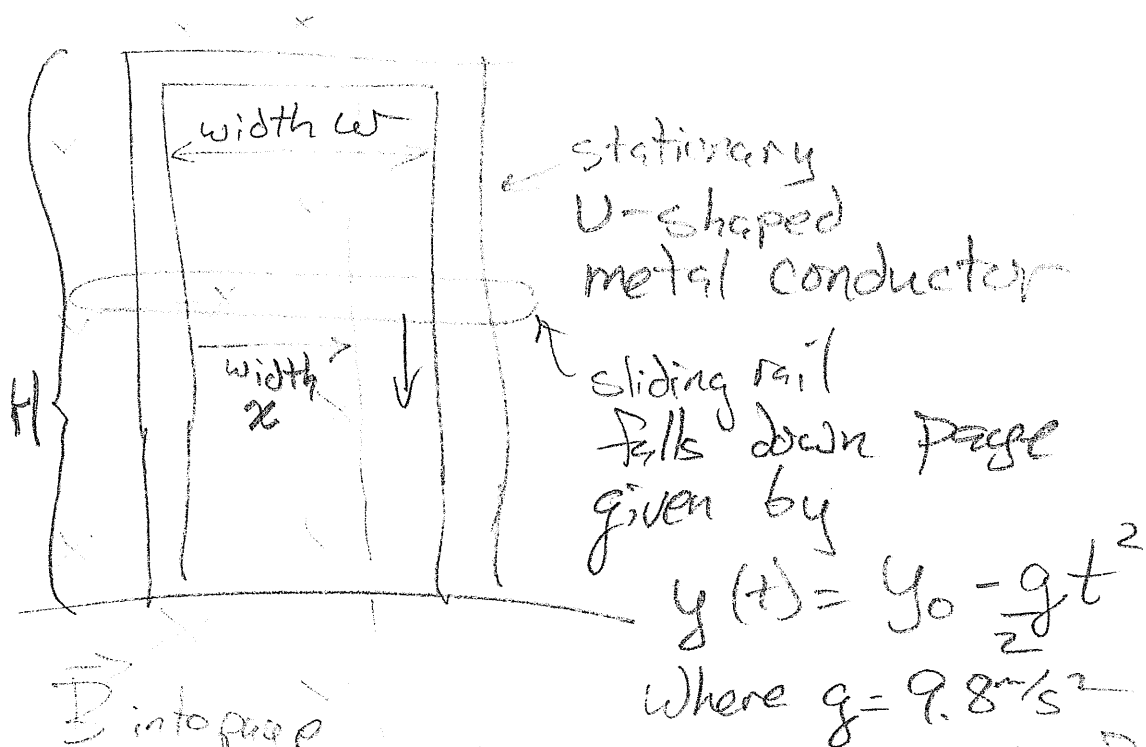 width w
stationary
U-shaped
metal conductor
H
width
x
sliding rail
falls down page
given by
y(t) = y₀ - g/2 t²
where g = 9.8 m/s²
B into page